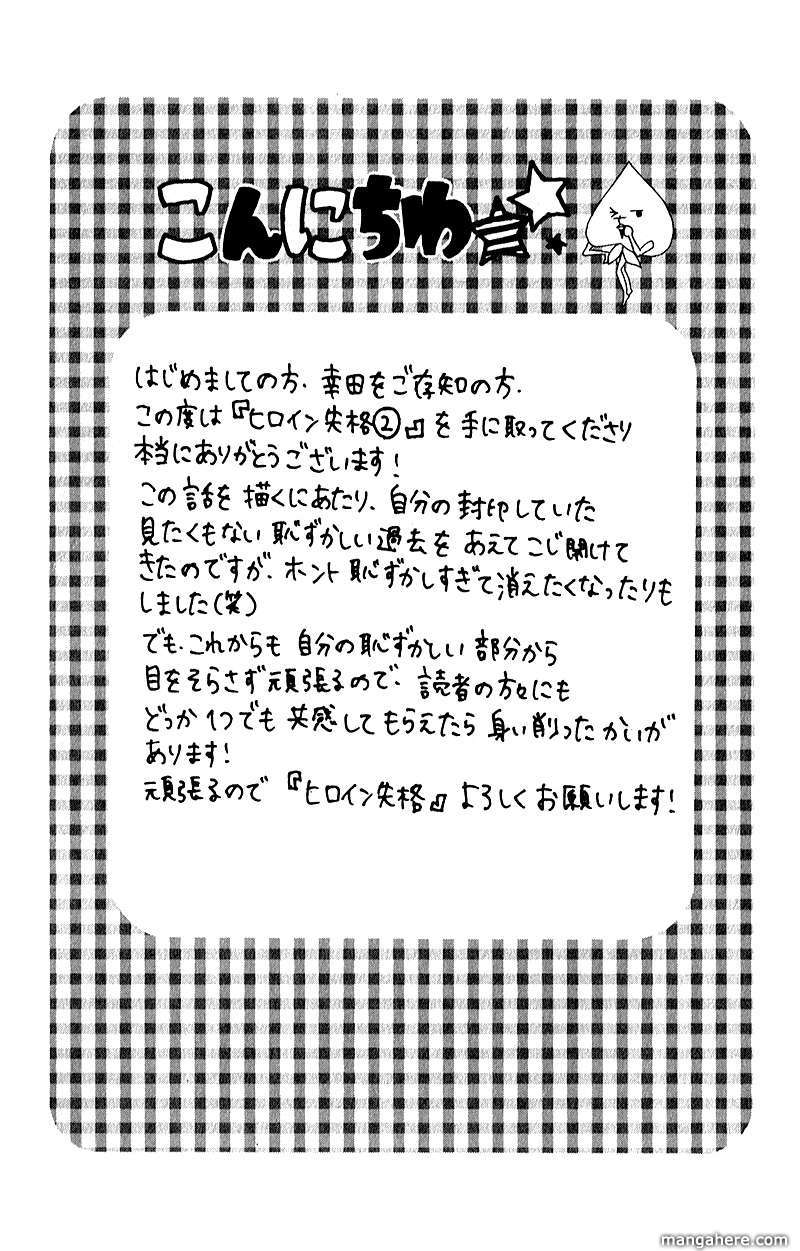 こんにちわ
はじめましての方、幸田をご存知の方、
この度は『ヒロイン失格②』を手に取ってくださり
本当にありがとうございます!
この話を描くにあたり、自分の封印していた
見たくもない恥ずかしい過去をあえてこじ開けて
きたのですが、ホント恥ずかしすぎて消えたくなったりも
しました(笑)
でも、これからも自分の恥ずかしい部分から
目をそらさず頑張るので、読者の方々にも
どっか1つでも共感してもらえたら身い削ったかいが
あります!
頑張るので『ヒロイン失格』よろしくお願いします!
mangahere.com